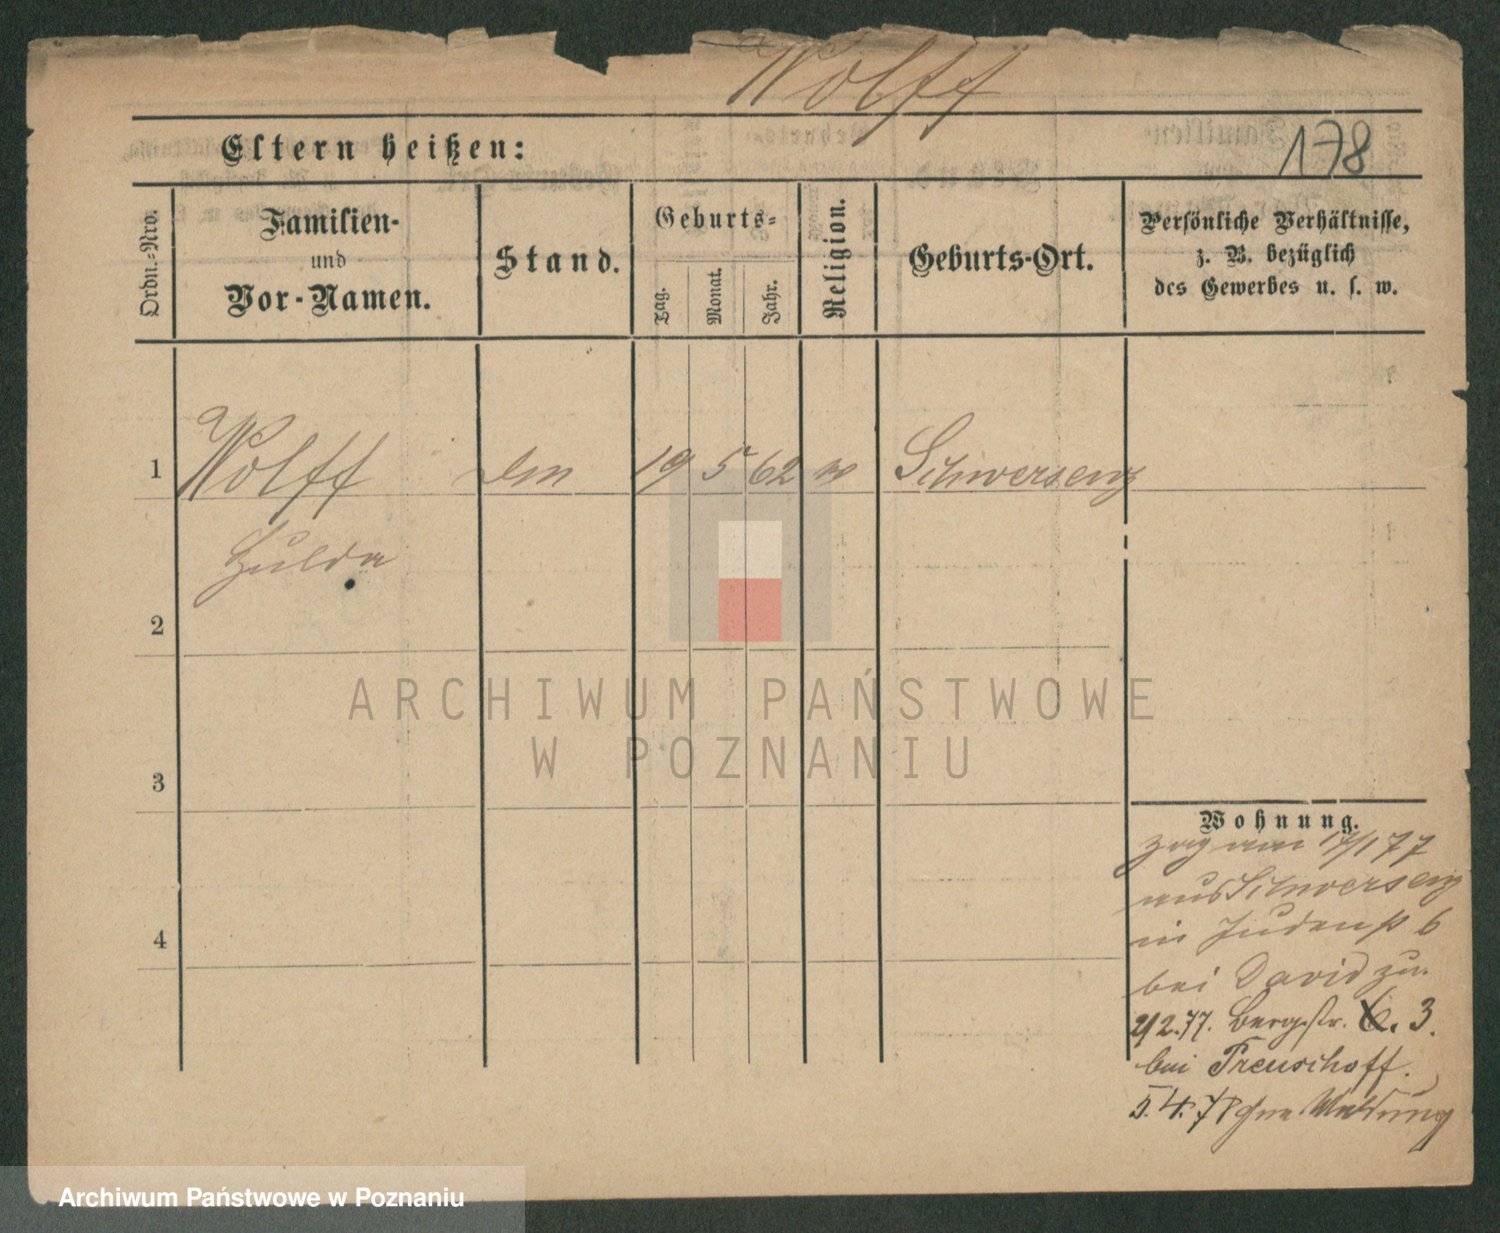 Wolff
178
Eltern heißen:
Ordn.-Nro.
Familien-
und
Vor-Namen.
Stand.
Geburts-
Tag.
Monat.
Jahr.
Religion.
Geburts-Ort.
Persönliche Verhältnisse,
z. B. bezüglich
des Gewerbes u. s. w.
1 Wolff 19 5 62 Schwersenz
Hulda
2
3
4
Wohnung.
zog am 17/1 77
aus Schwersenz
in Judenstr 6
bei David zu.
2/2.77. Bergstr. 6. 3.
bei Preuschoff.
5.4.78 ohne Meldung
ARCHIWUM PAŃSTWOWE
W POZNANIU
Archiwum Państwowe w Poznaniu